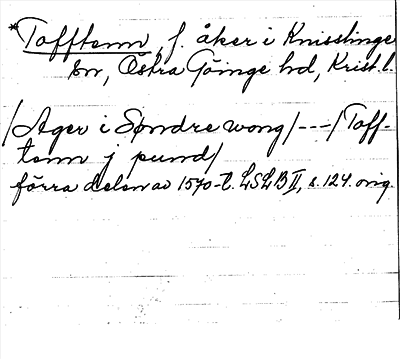 *Tofftenn, f. åker i Knisslinge
sn, Östra Göinge hd, Krist. l.
/Ager i Søndre wong/ --- /Toff-
tenn j pund/
förra delen av 1570-t. LSLB II, s. 124. orig.